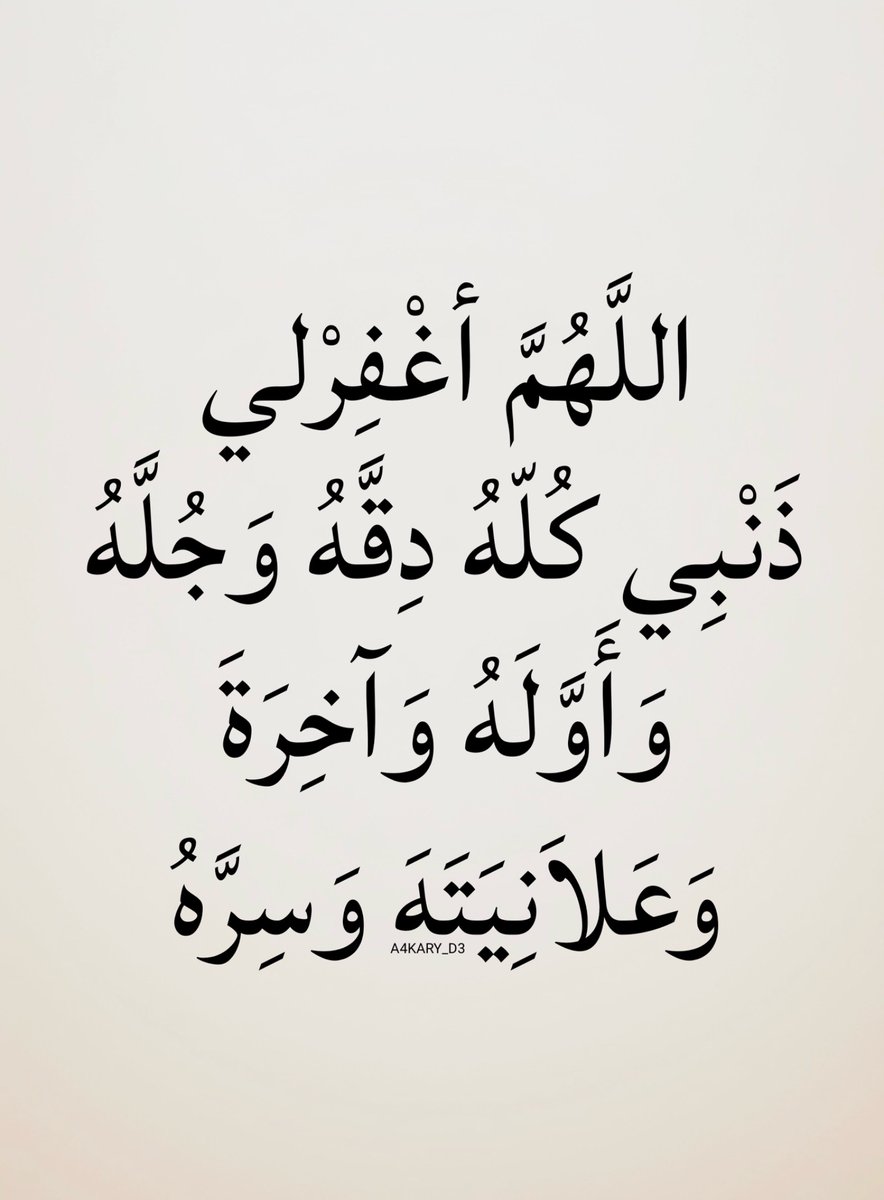 اللَّهُمَّ أغْفِرْلي
ذَنْبِي كُلّهُ دِقَّهُ وَجُلَّهُ
وَأَوَّلَهُ وَآخِرَةَ
وَعَلاَنِيَتَهَ وَسِرَّهُ
A4KARY_D3